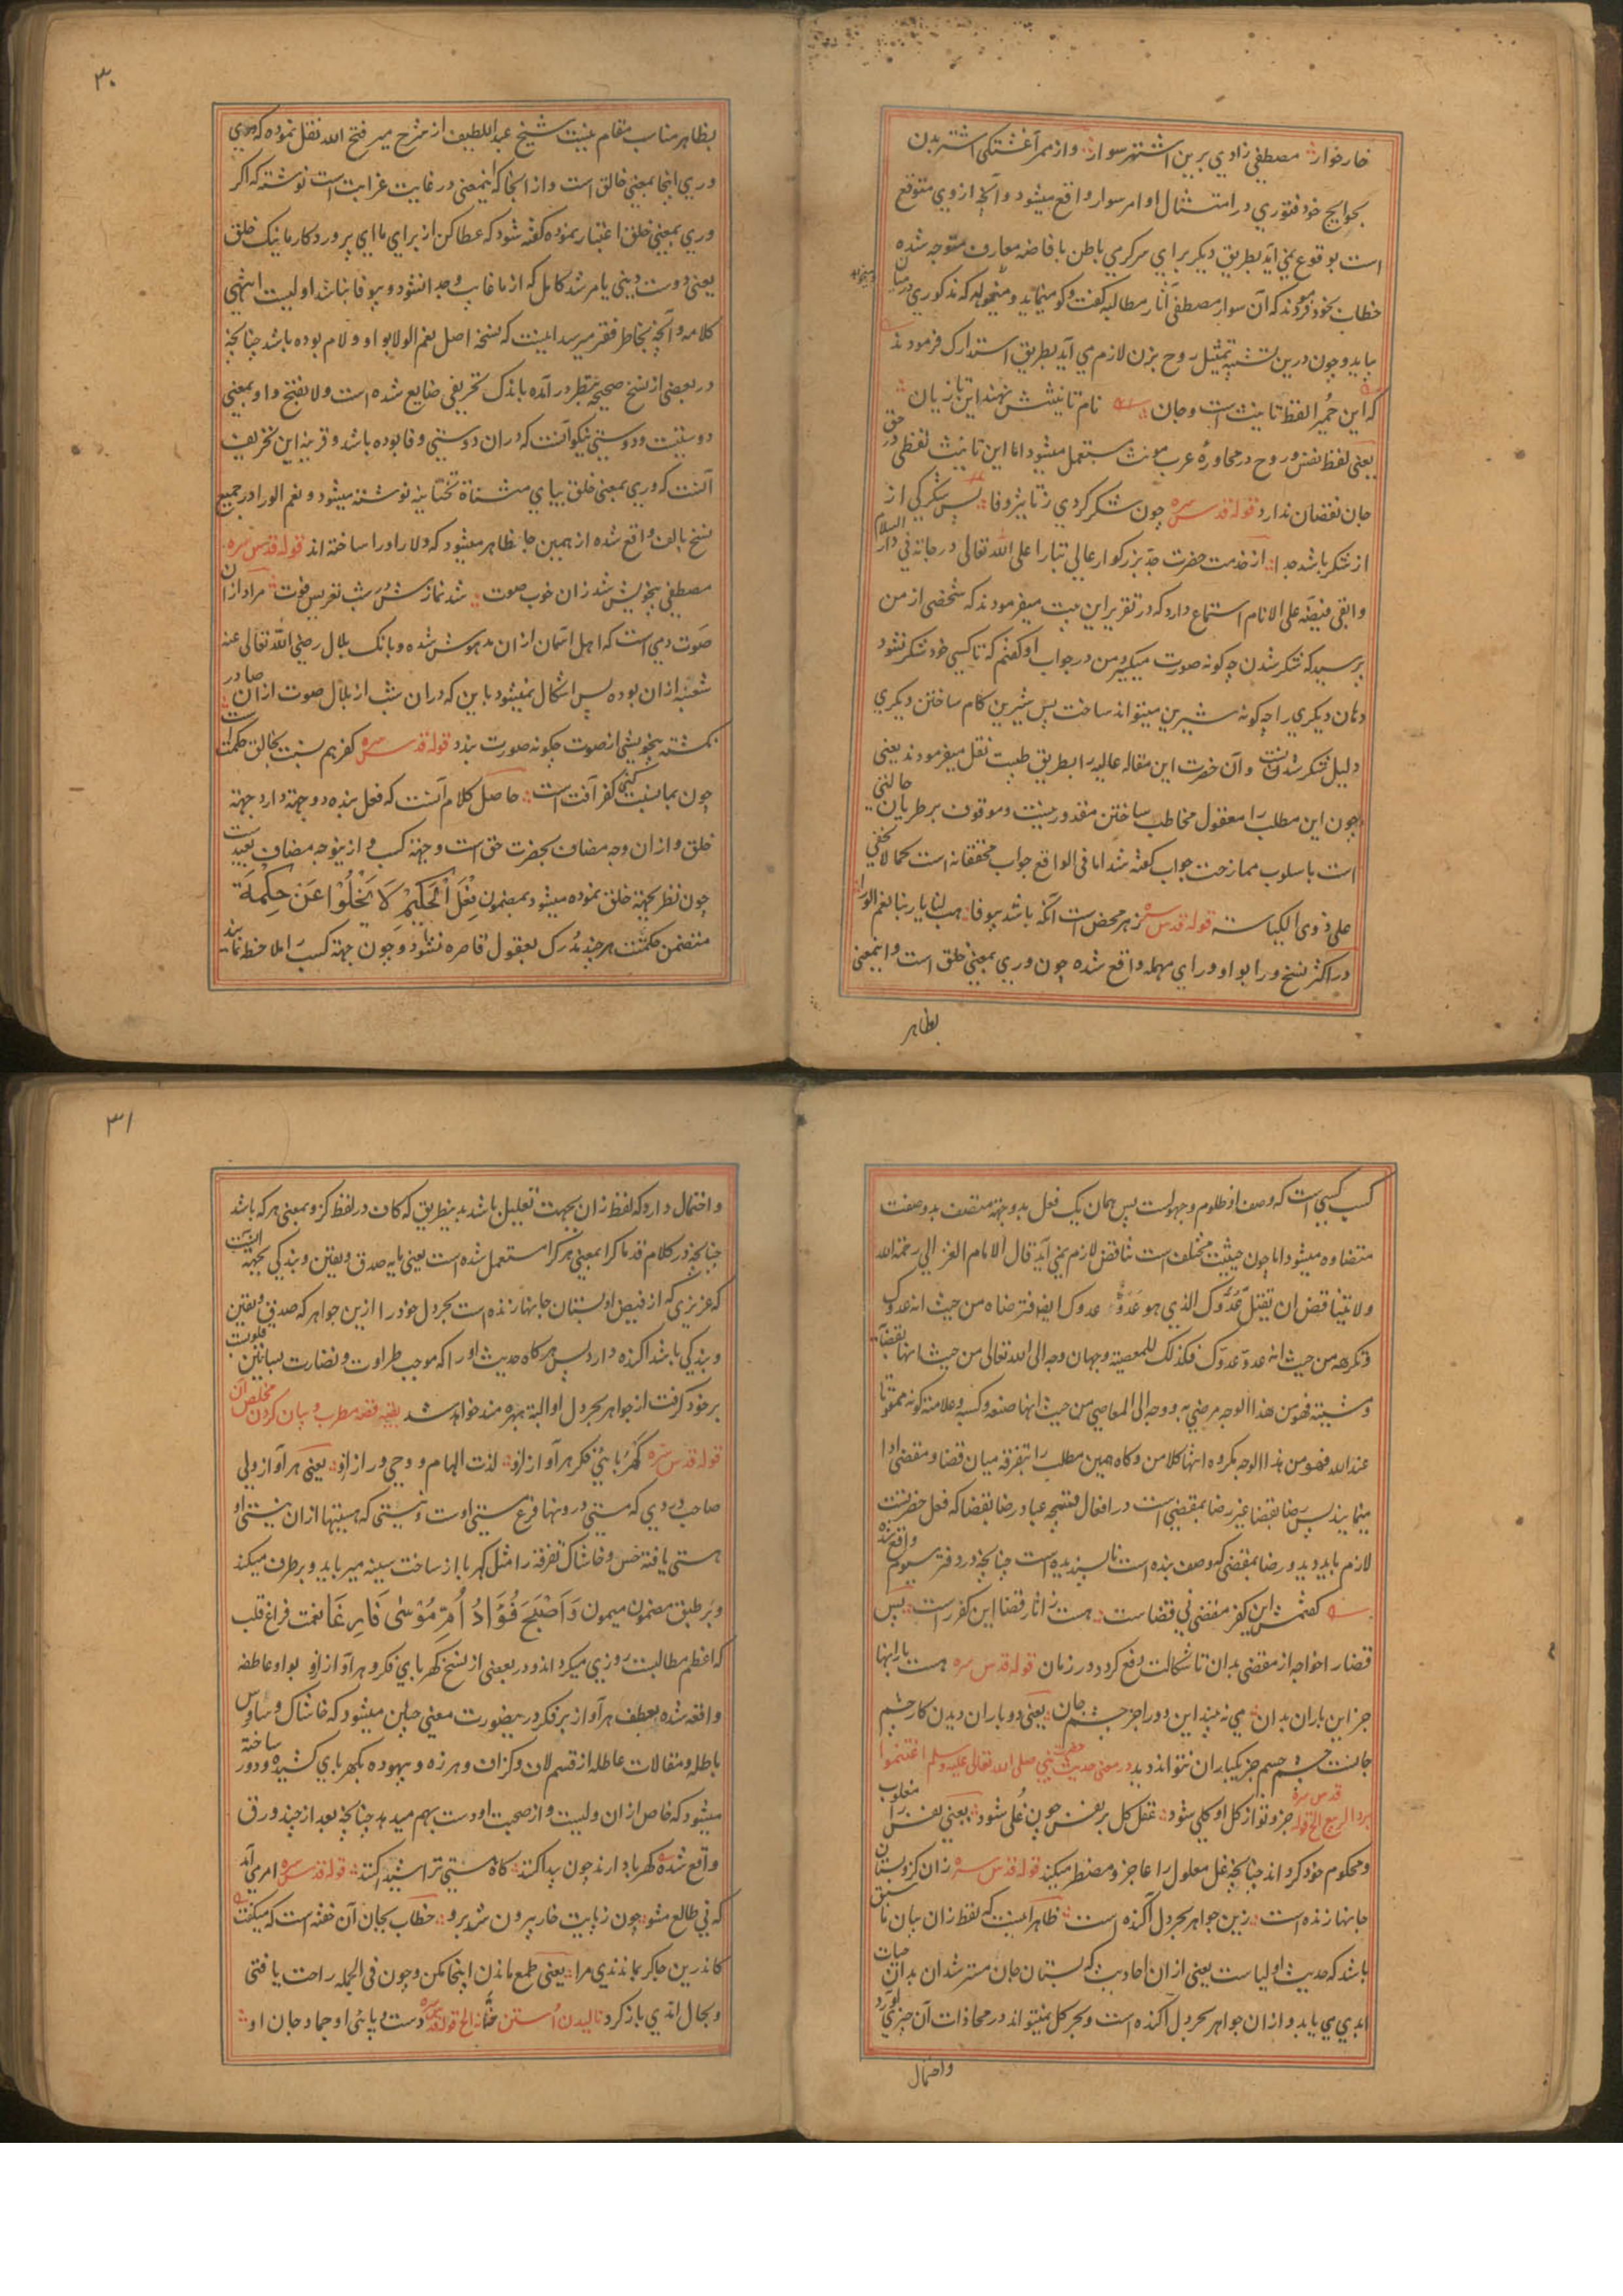 خارخوار مصطفی زادی برین اشتر سوار وازممر آغشتکی اشتر بدن
بحوایج خود فتوری در امتثال اوامر سوار واقع میشود و آنچه ازوی متوقع
است بوقوع نمی آید بطریق دیکر برای سرکرمی باطن بافاضه معارف متوجه شده
خطاب بخود فرمودند که آن سوار مصطفی آثار مطالبه کفت وکو مینماید و میخواهد که مذکوری درمیان
بیاید وچون درین تشبیه تمثیل روح بزن لازم می آید بطریق استدارک فرمودند
که این حُمیرا لفظ تانیث است وجان نام تانیثش نهند این تازیان
یعنی لفظ نفس وروح در محاوره عرب مونث مستعمل میشود اما این تانیث لفظی در حق
جان نقصان ندارد قوله قدس سره چون شکر کردی ز تاثیر وفا پس شکر کی از
از شکر باشد جدا از خدمت حضرت جد بزرکوار عالی تبار اعلی الله تعالی درجاته فی دار السلام
وابقی فیضه علی الانام استماع دارد که در تقریر این بیت میفرمودند که شخصی از من
پرسید که شکر شدن چه کونه صورت میکیرد من در جواب او کفتم که تا کسی خود شکر نشود
دهان دیکری را چه کونه شیرین میتواند ساخت پس شیرین کام ساختن دیکری
دلیل شکر شدنست وآن حضرت این مقاله عالیه را بطریق طیبت نقل میفرمودند یعنی
چون این مطلب را معقول مخاطب ساختن مقدور نیست وموقوف بر طریان حالتی
است باسلوب ممازحت جواب کفته شد اما فی الواقع جواب محققانه است کما لا یخفی
علی ذوی الکیاسته قوله قدس سره زهر محض است آنکه باشد بیوفا هب لنا یا ربنا نعم الورا
در اکثر نسخ ورا بواو ورای مهمله واقع شده چون وری بمعنی خلق است واینمعنی
بظاهر
۳۰
بظاهر مناسب مقام نیست شیخ عبداللطیف از شرح میر فتح الله نقل نموده که وری
وری اینجا بمعنی خالق است واز انجا که اینمعنی در غایت غرابت است نوشته که اکر
وری بمعنی خلق اعتبار نموده کفته شود که عطا کن از برای ما ای پروردکار ما نیک خلق
یعنی دوست دینی یا مرشد کامل که از ما غایب وجدا نشود و بیوفا نباشد اولیست انتهی
کلامه وآنچه بخاطر فقیر میرسد اینست که نسخه اصل نعم الولا بواو ولام بوده باشد چنانچه
در بعضی از نسخ صحیحه بنظر درآمده باندک تحریفی ضایع شده است و ولا بفتح واو بمعنی
دوستیست ودوستی نیکو آنست که دران دوستی وفا بوده باشد وقرینه این تحریف
آنست که وری بمعنی خلق بیای مثناة تحتانیه نوشته میشود ونعم الورا در جمیع
نسخ بالف واقع شده از همین جا ظاهر میشود که ولا را ورا ساخته اند قوله قدس سره
مصطفی بیخویش شد زان خوب صوت شد نمازش شب تعریس فوت مراد ازان
صوت دمی است که اهل آسمان ازان مدهوش شده وبانک بلال رضی الله تعالی عنه
شعبه ازان بوده پس اشکال نمیشود باین که دران شب از بلال صوت اذان صادر
نکشته بیخویشی از صوت چکونه صورت بندد قوله قدس سره کفر هم نسبت بخالق حکمت است
چون بما نسبت کنی کفر آفت است حاصل کلام آنست که فعل بنده دو جهة دارد جهة
خلق وازان وجه مضاف بحضرت حق است وجهة کسب واز ینوجه مضاف بعبد است
چون نظر بجهة خلق نموده میشود بمضمون فِعْلَ الْحَکِیْمِ لَا یَخْلُوْا عَن حِکمَة
متضمن حکمتست هر چند مدرک بعقول قاصره نشود و چون جهة کسب را ملاحظه نمایند
کسب کسی است که وصف او ظلوم وجهولست پس همان یک فعل بدو جهة متصف بدو صفت
متضاده میشود اما چون حیثیت مختلف است تناقض لازم نمی آید قال الامام الغزالی رحمه الله
ولا یتناقض ان تقتل عَدُوَّک الذی هو عَدُوّ عدوک ایضا فترضاه من حیث انه عدوک
وتکرهه من حیث انه عدو عدوک فکذلک للمعصیة وجهان وجه الی الله تعالی من حیث انها بقضائه
ومشیته فهو من هذا الوجه مرضی به ووجه الی المعاصی من حیث انها صنعه وکسبه وعلامته کونه ممقوتا
عند الله فهو من هذا الوجه مکروه انتها کلامه وکاه همین مطلب را بتفرقه میان قضا ومقضی ادا
مینمایند پس رضا بقضا غیر رضا بمقضی است در افعال قبیحه عباد رضا بقضا که فعل حضرتست
لازم باید دید ورضا بمقضی که وصف بنده است ناپسندیده است چنانچه در دفتر سیوم واقع شده
کفتمش این کفر مقضی نی قضاست هست آثار قضا این کفر راست پس
قضا را خواجه از مقضی بدان تا شکالت دفع کردد در زمان قوله قدس سره هست بارانها
جز این باران بدان می نه بیند این دو را جز چشم جان یعنی دو باران دیدن کار چشم
جانست چشم جسم جز یکباران نتواند دید در معنی حدیث حضرت نبی صلی الله تعالی علیه وسلم اغتنموا
برد الربیع الخ قوله قدس سره جزو تو از کل او کلی شود عقل کل بر نفس چون غلی شود یعنی نفس را مغلوب
ومحکوم خود کرداند چنانچه غل مغلول را عاجز ومضطر میکند قوله قدس سره زان کزو بستان
جانها زنده است زین جواهر بحر دل آکنده است ظاهرا اینست که لفظ زان بیان ما سبق
باشد که حدیث اولیاست یعنی ازان احادیث که بستان جان مسترشدان بدان حیات
ابدی می یابد و ازان جواهر بحر دل آکنده است وبحر کل نمیتواند در محاذات آن چیزی آورد
واحتمال
۳۱
واحتمال دارد که لفظ زان بجهت تعلیل باشد بدینطریق که کاف در لفظ کزو بمعنی هر که باشد
چنانچه در کلام قدما کرا بمعنی هر کرا مستعمل شده است یعنی پایه صدق ویقین وبندکی بجهة آنست
که عزیزی که از فیض او بستان جانها زنده است بحر دل خود را ازین جواهر که صدق ویقین
وبندکی باشد آکنده دارد پس هر کاه حدیث او را که موجب طراوت ونضارت بساتین قلوبست
بر خود کرفت از جواهر بحر دل او البته بهره مند خواهد شد بقیه قصه مطرب وبیان کردن مخلص آن
قوله قدس سره کَهْرُبائی فکر هر آواز او لذت الهام و وحی وراز او یعنی هر آواز ولی
صاحب دردی که مستی درونها فرع مستی اوست و نیستی که هستیها ازان نیستی او
هستی یافته خس وخاشاک تفرقه را مثل کهربا از ساخت سینه میرباید وبرطرف میکند
وبر طبق مضمون میمون وَاَصْبَحَ فُؤَادُ اُمِّ مُوْسٰی فَارِغًا نعمت فراغ قلب
که اعظم مطالبست روزی میکرداند ودر بعضی از نسخ کهربای فکر وهر آواز او بواو عاطفه
واقعه شده بعطف هر آواز بر فکر درینصورت معنی چنین میشود که خاشاک وساوس
باطله ومقالات عاطله از قسم لاف وکزاف وهرزه وبیهوده بکهربای کشیده ودور ساخته
میشود که خاص ازان ولیست واز صحبت او دست بهم میدهد چنانچه بعد از چند ورق
واقع شده کهربا دارند چون پیدا کنند کاه هستی ترا شیدا کنند قوله قدس سره امر می آید
که نی طالع مشو چون ز پایت خار بیرون شد برو خطاب بجان آن خفته است که میکفت
کاندرین جا کر بماندندی مرا یعنی طمع ماندن اینجا مکن وچون فی الجمله راحت یافتی
وبحال اندی باز کرد نالیدن اُستن حنّانه الخ قوله قدس سره دست وپائی او جماد وجان او